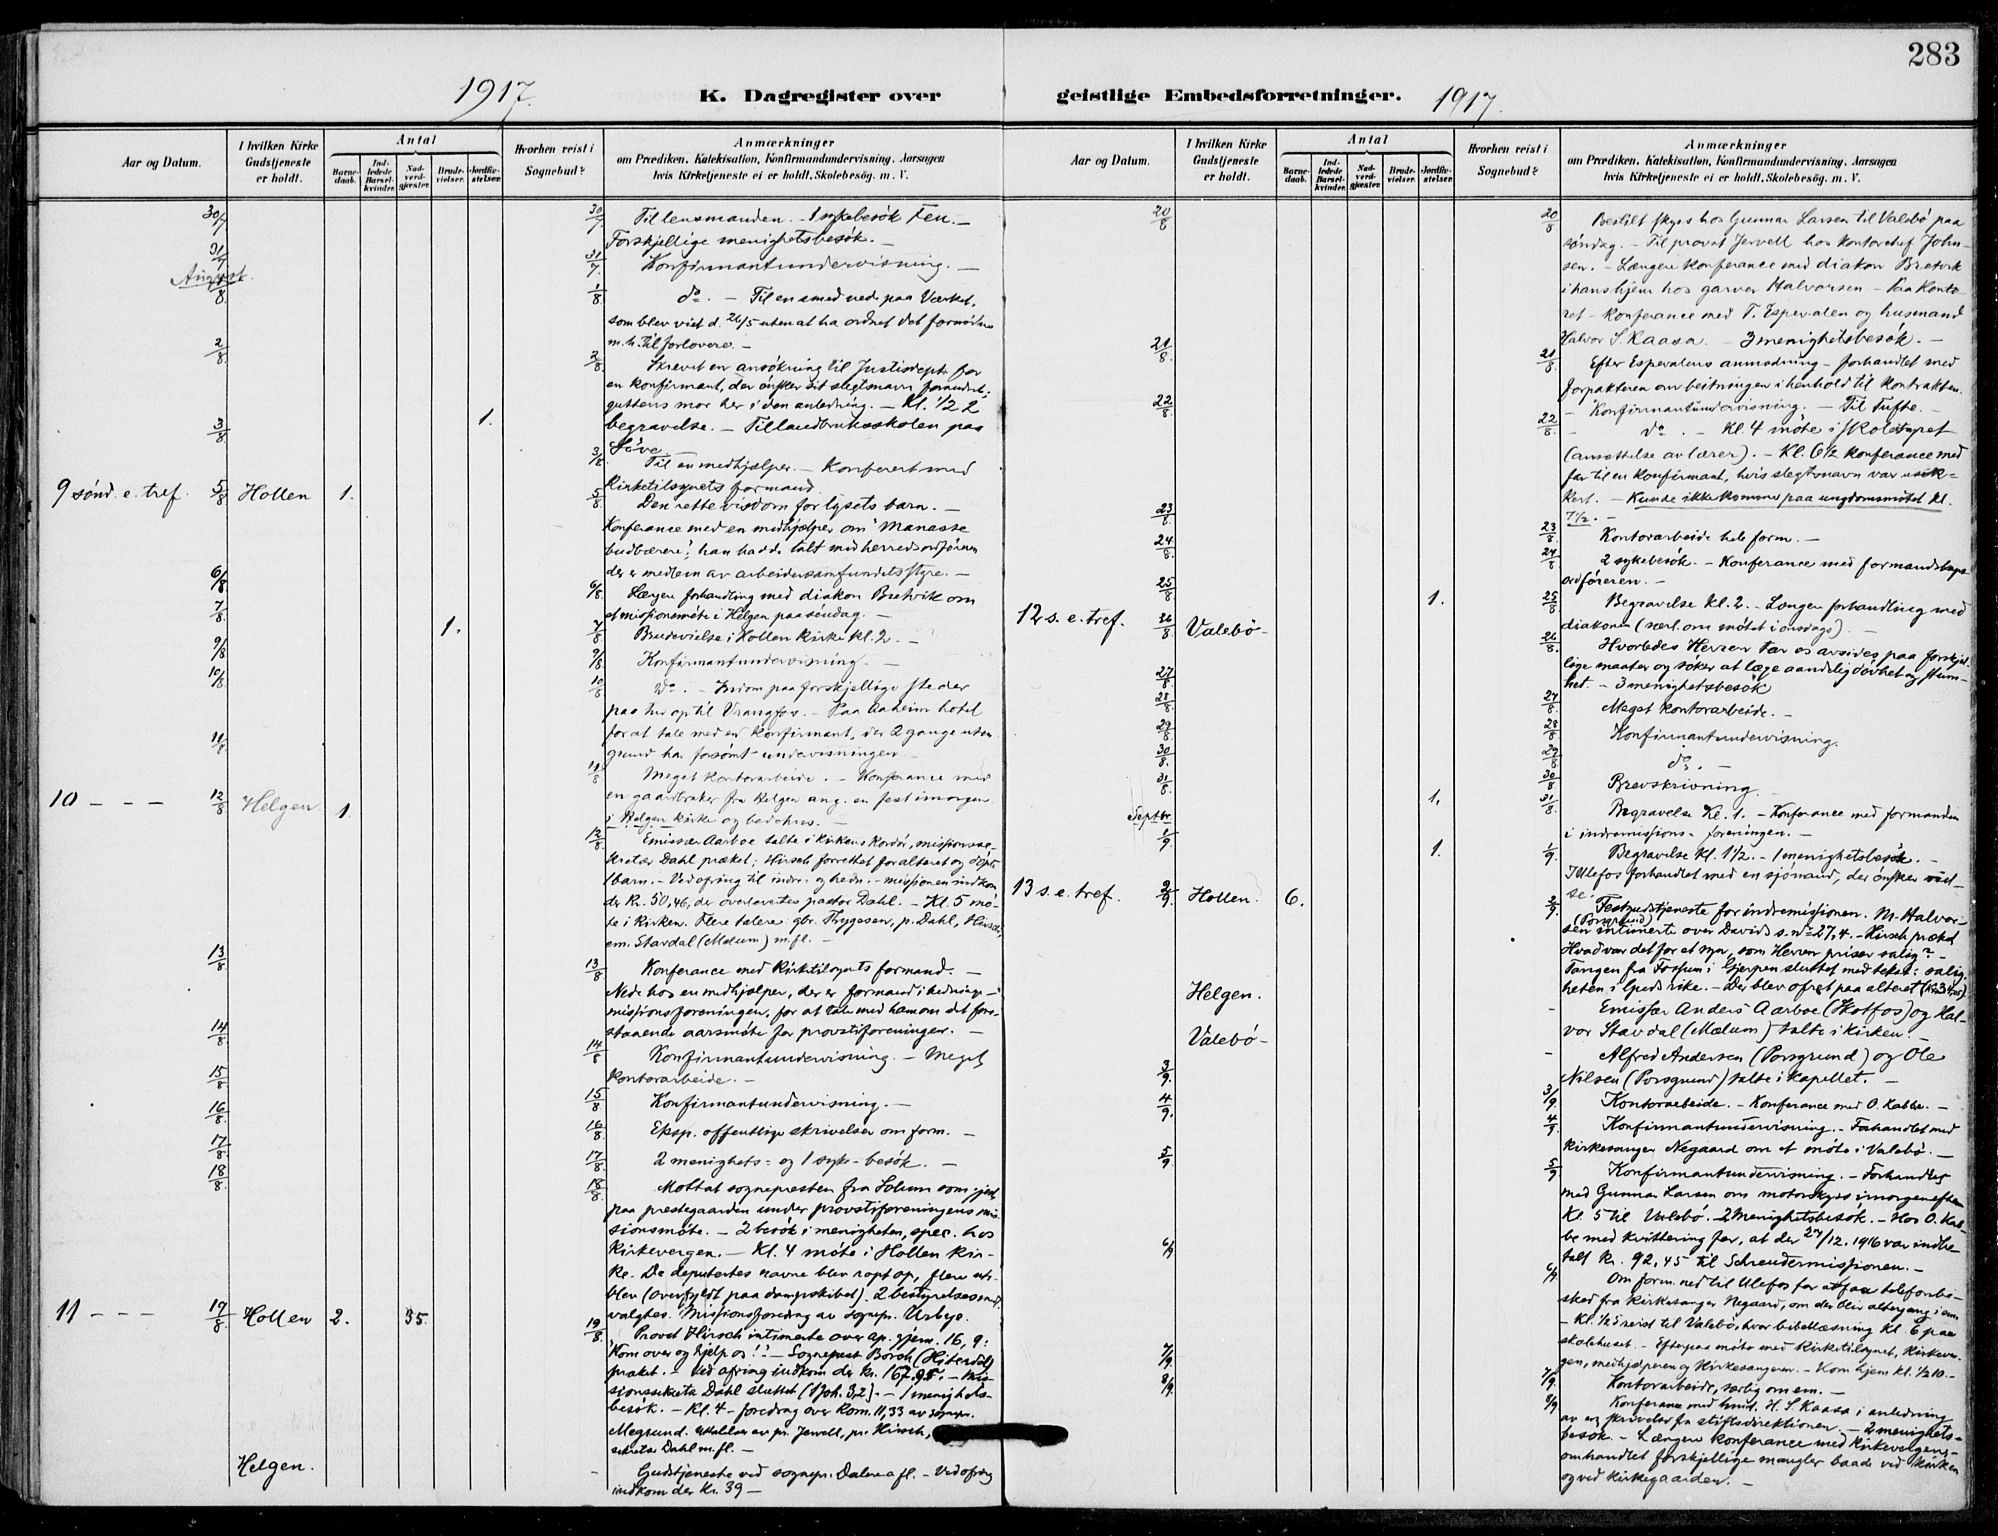 283
1917.
K. Dagregister over
geistlige Embedsforretninger.
1917.
Aar og Datum.
I hvilken Kirke
Gudstjeneste
er holdt.
Antal
Barne-
daab.
Ind-
ledede
Barsel-
kvinder.
Nad-
verd-
gjester.
Brude-
vielser.
Jordfæ-
stelser.
Hvorhen reist i
Sognebud?
Anmærkninger
om Prædiken, Katekisation, Konfirmandundervisning, Aarsagen
hvis Kirketjeneste ei er holdt, Skolebesøg, m. V.
30/7 Til lensmanden. - 1 sykebesök Fen. -
Forskjellige menighetsbesök. -
31/7 Konfirmantundervisning. -
August.
1/8 do. - Til en smed nede paa Værket,
som blev viet d. 26/5 uten at ha ordnet det fornødne
m.h.t. til forlovere. -
2/8 Skrevet en ansökning til Justisdept. for
en konfirmant, der önsker sit slegtsnavn forandret;
guttens mor her i den anledning. - Kl. 1/2 2
begravelse. - Til landbruksskolen paa 1.
Söve. -
3/8 Til en medhjælper. - Konferert med
Kirketilsynets formand.
9 sönd. e. tref. 5/8 Hollen 1. Den rette visdom for lysets barn. -
Konferance med en medhjælper om "Manasse
budbærere"; han hadde talt med herredsordføreren
der er medlem av arbeidersamfundets styre. -
6/8 Længere forhandling med diakon Bretvik om
et missionsmöte i Helgen paa söndag. -
7/8 1. Brudevielse i Hollen kirke kl. 2. -
9/8 Konfirmantundervisning. -
10/8 do. - Indom paa forskjellige steder
paa tur op til Vrangfos. - Paa Aaheim hotel
for at tale med en konfirmant, der 2 gange uten
grund har forsömt undervisningen.
11/8 Meget kontorarbeide. - Konferance med
en gaardbruker fra Helgen ang. en fest imorgen
i Helgen kirke og bedehus. -
10 - - - 12/8 Helgen 1. Emissær Aarboe talte i kirkens kordör, missionsse-
kretær Dahl præket; Hirsch forrettet for alteret og döpte
1 barn. - Ved ofring til indre- og hedn.- missionen indkom
der kr. 50,46, der overleveres pastor Dahl. - Kl. 5 mö-
te i kirken. Flere talere: gbr. Thygesen, p. Dahl, Hirsch,
em. Stavdal (Mælum) m.fl. -
13/8 Konferance med Kirketilsynets formand. -
Nede hos en medhjælper, der er formand i hednings-
missionsforeningen, for at tale med ham om det fore-
staaende aarsmöte for provstiforeningen. -
14/8 Konfirmantundervisning. - Meget
kontorarbeide. -
15/8 Konfirmantundervisning. -
16/8 Eksp. offentlige skrivelser om form. -
17/8 2 menighets- og 1 syke-besök. -
18/8 Mottat sognepresten fra Solum som gjest
paa prestegaarden under provstiforeningens mis-
sionsmöte. - 2 besök i menigheten, spec. hos
kirkevergen. - Kl. 4 möte i Hollen kir-
ke. De deputertes navne blev ropt op, flere ute-
blev (overfyldt paa dampskibet). 2 bestyrelsesmed.
valgtes. Missionsforedrag av sognepr. Urbye.
11 - - - 19/8 Hollen 2. 35. Provst Hirsch intimerte over Ap. gjern. 16, 9:
"Kom over og hjelp os!" - Sogneprest Borch (Hiterdal)
præket. - Ved ofring indkom der kr. 167.95. - Mis-
sionssekretær Dahl sluttet (1 Joh. 3,2). - 1 menighets-
besök. - Kl. 4 - foredrag over Rom. 11,33 av sognepr.
Megrund. Uttalelser av pr. Jervell, pr. Hirsch,
sekretær Dahl m.fl. -
Helgen. - Gudstjeneste ved sognepr. Dalene afl. - Ved ofring
indkom der kr. 39 -
Aar og Datum.
I hvilken Kirke
Gudstjeneste
er holdt.
Antal
Barne-
daab.
Ind-
ledede
Barsel-
kvinder.
Nad-
verd-
gjester.
Brude-
vielser.
Jordfæ-
stelser.
Hvorhen reist i
Sognebud?
Anmærkninger
om Prædiken, Katekisation, Konfirmandundervisning, Aarsagen
hvis Kirketjeneste ei er holdt, Skolebesøg, m. V.
20/8 Bestilt skyds hos Gunnar Larsen til Valebö paa
söndag. - Til provst Jervell hos kontorchef John-
sen. - Længere konferance med diakon Bretvik
i hans hjem hos garver Halvorsen - Paa konto-
ret - konferance med T. Espevalen og husmand
Halvor S. Kaasa. - 3 menighetsbesök. -
21/8 Efter Espevalens anmodning - forhandlet med
forpakteren om beitningen i henhold til kontrakten.
- Konfirmantundervisning. - Til Tufte. -
22/8 do. - Kl. 4 möte i skolestyret
(ansættelse av lærer). - Kl. 6 1/2 konferance med
far til en konfirmant, hvis slegtsnavn var usik-
kert. - Kunde ikke komme paa ungdomsmötet kl.
7 1/2. -
23/8 Kontorarbeide hele form. -
24/8 2 sykebesök. - Konferance med formandskaps-
ordföreren. -
25/8 1. Begravelse kl. 2. - Længere forhandling med
diakonen (særl. om mötet i onsdags). -
12 s. e. tref. 26/8 Valebö - Hvorledes Herren tar os avsides paa forskjel-
lige maater og söker at læge aandelig dövhet og stum-
het. - 3 menighetsbesök
27/8 Meget kontorarbeide. -
28/8 Konfirmantundervisning.
29/8 do. -
30/8 Brevskrivning.
31/8 1. Begravelse kl. 1. - Konferance med formanden
i indremissions-foreningen. -
Septbr.
1/9 1. Begravelse kl. 1 1/2. - 1 menighetsbesök. -
I Ulefos forhandlet med en sjömand, der önsker viel-
se.
13 s. e. tref. 2/9 Hollen. 6. Festgudstjeneste for indremissionen. M. Halvor-
sen (Porsgrund) intimerte over Davids s. nº 27,4. - Hirsch præket
Hvad var det for et syn, som Herren priser salig? -
Tangen fra Fossum i Gjerpen sluttet med tekst: salig-
heten i Guds rike. - Der blev ofret paa alteret
Helgen. - Emissær Anders Aarboe (Skotfos) og Hal-
vor Stavdal (Mælum) talte i kirken. -
Valebö - - Alfred Andersen (Porsgrund) og Ole
Nilsen (Porsgrund) talte i kapellet. -
3/9 Kontorarbeide. - Konferance med O. Kabbe. -
4/9 Konfirmantundervisning. - Forhandlet med
kirkesanger Negaard om et möte i Valebö. -
5/9 Konfirmantundervisning. - Forhandlet
med Gunnar Larsen om motorskyds imorgen efterm.
kl. 5 til Valebö. 2 Menighetsbesök. - Hos O. Kab-
be med kvittering for, at der 27/12. 1916 var indbe-
talt kr. 92,45 til Schreudermissionen. -
6/9 Om form. ned til Ulefos for at faa telefonbe-
sked fra kirkesanger Negaard, om der blir altergang i em.
- Kl. 1/2 5 reist til Valebö, hvor bibellæsning kl. 6 paa
skolehuset. - Efterpaa möte med Kirketilsynet, kirkever-
gen, medhjælperen og kirkesangeren. - Kom hjem kl. 1/2 10. -
7/9 Kontorarbeide, særlig om em. -
8/9 Konferance med husm. H. S. Kaasa i anledning
av en skrivelse fra stiftsdirektionen. - 2 menighets-
besök. - Længere konferance med kirkevergen, -
omhandlet forskjellige mangler baade ved kirken
og ved kirkegaarden. -